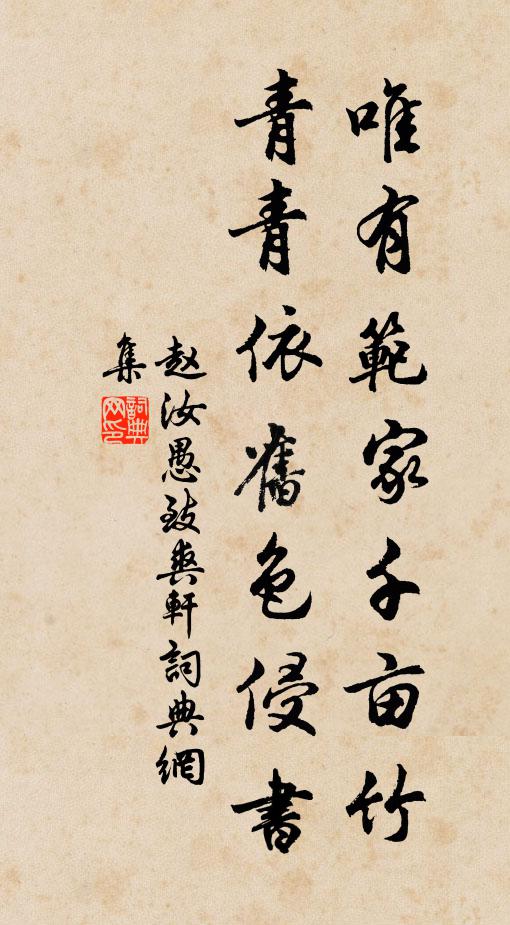 唯有範家千亩竹
青青依舊色侵書
赵汝愚致爽軒詞典網
集
詞典网印